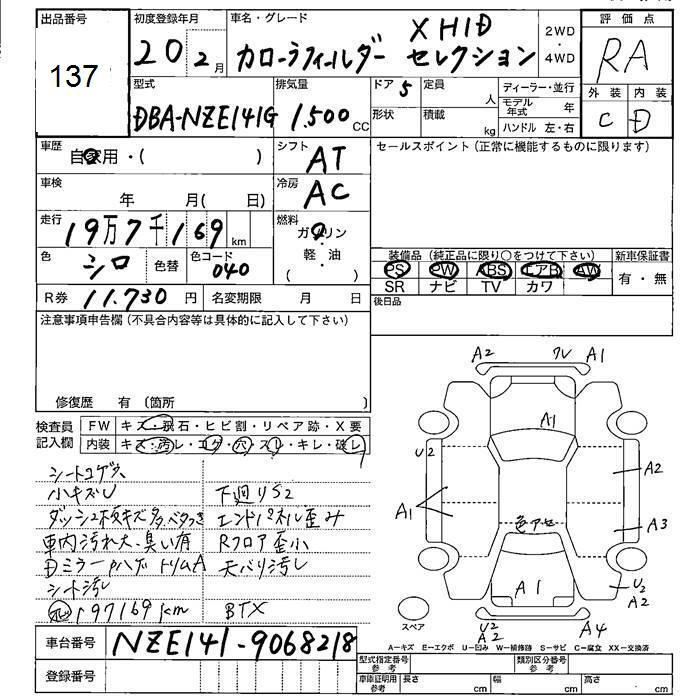 出品番号 初度登録年月 車名・グレード 2WD・4WD 評価点
137 20年2月 カローラフィールダー X HID セレクション RA
型式 排気量 ドア 5 定員 人 ディーラー・並行 外装 内装
DBA-NZE141G 1.500 CC 形状 積載 kg モデル年式 年 C D
ハンドル 左・右
車歴 自家用・( ) シフト AT セールスポイント(正常に機能するものに限ります)
車検 年 月( 日) 冷房 AC
走行 19万7千169 km 燃料 ガソリン
色 シロ 色替 色コード 040 軽・油 ( )
装備品(純正品に限り○をつけて下さい) 新車保証書
PS PW ABS エアB AW 有・無
SR ナビ TV カワ
R券 11.730 円 名変期限 月 日 後日品
注意事項申告欄(不具合内容等は具体的に記入して下さい)
修復歴 有 (箇所 )
検査員記入欄 FW キズ・飛石・ヒビ割・リペア跡・X要
内装 キズ・汚レ・コゲ・穴・スレ・キレ・破レ
シートコゲ穴
小キズU 下廻りS2
ダッシュ板キズ多、ベタつき エンドパネル歪み
車内汚れ大、臭い有 Rフロア歪小
Dミラーハゲ トリムA 天バリ汚し
シート汚し
197169km BTX
A2 ワレ A1
A1
U2 A2
A1
A3
色アセ
A1 U2 A2
スペア U2 A2 A4
A-キズ E-エクボ U-凹み W-補修跡 S-サビ C-腐食 XX-交換済
車台番号 NZE141-9068218
型式指定番号 参考 類別区分番号 参考
登録番号 車庫証明用 参考 長さ cm 幅 cm 高さ cm